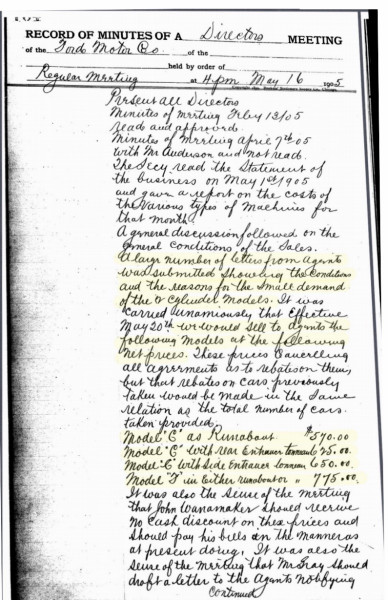 RECORD OF MINUTES OF A Directors MEETING
of the Ford Motor Co. of the
held by order of
Regular Mrrting at 4 pm May 16 1905
Present all Directors
Minutes of mrrting Feby 13/05
read and approved.
Minutes of Mrrting April 7th 05
with Mr Anderson and not read.
The Secy read the Statement of
the business on May 1st 1905
and gave a report on the costs of
the Various types of Machines for
that month.
A general discussion followed on the
general conditions of the Sales.
A large number of letters from Agents
was submitted showing the Conditions
and the reasons for the Small demand
of the 2 Cylinder Models. It was
carried unanimously that Effective
May 20th we would sell to agents the
following Models at the following
net prices. These prices Cancelling
all agrrments as to rebates on them,
but that rebates on cars previously
taken would be made in the same
relation as the total number of cars
taken provided.
Model "C" as Runabout $570.00
Model "C" with rear Entrance tonneau 625.00
Model "C" with Side Entrance tonneau 650.00
Model "F" in Either runabout or " 775.00
It was also the Sense of the mrrting
that John Wanamaker should receive
no cash discount on these prices and
should pay his bills in the manner as
at present doing. It was also the
Sense of the mrrting that Mr Gray should
draft a letter to the Agents notifying
Continued